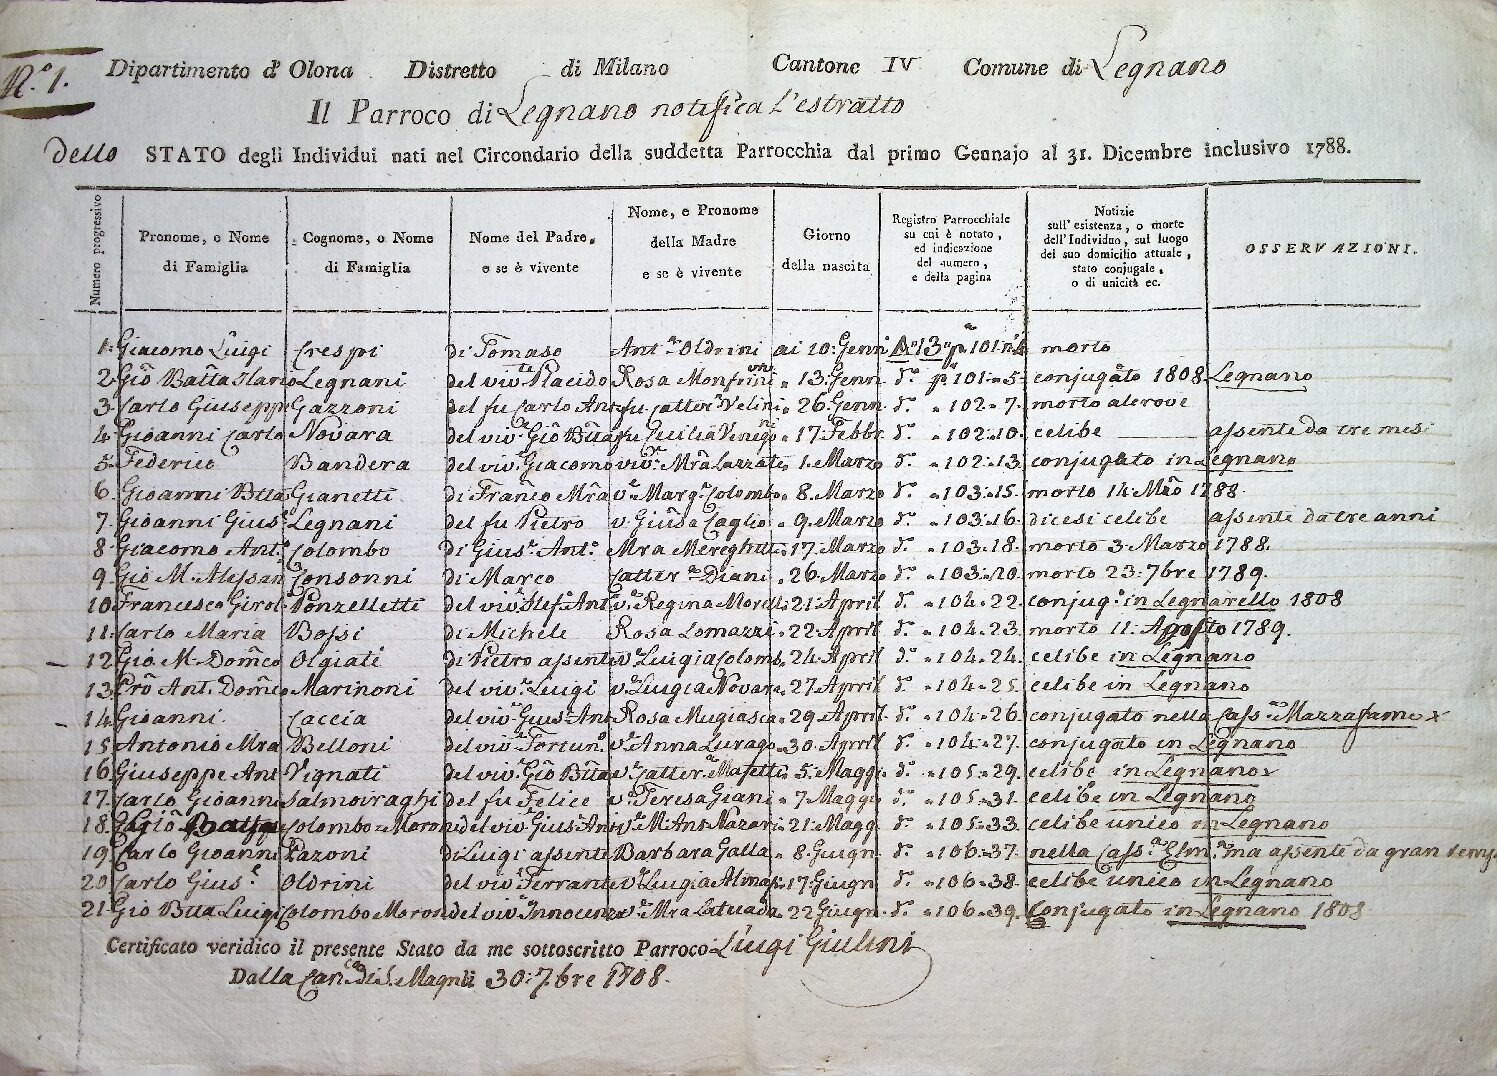 N.º 1. Dipartimento d' Olona Distretto di Milano Cantone IV Comune di Legnano
Il Parroco di Legnano notifica l'estratto
dello STATO degli Individui nati nel Circondario della suddetta Parrocchia dal primo Gennajo al 31. Dicembre inclusivo 1788.
Numero progressivo
Pronome, o Nome di Famiglia
Cognome, o Nome di Famiglia
Nome del Padre, e se è vivente
Nome, e Pronome della Madre e se è vivente
Giorno della nascita
Registro Parrocchiale su cui è notato, ed indicazione del numero, e della pagina
Notizie sull' esistenza, o morte dell' Individuo, sul luogo del suo domicilio attuale, stato conjugale, o di unicità ec.
OSSERVAZIONI.
1. Giacomo Luigi Crespi di Tomaso Ant.ª Oldrini ai 10: Genn 13 101 morto
2. Giõ Batta Ilario Legnani del viv.te Placido Rosa Monfrini " 13. Genn. d.º pª 101 " 5. conjugato 1808 Legnano
3. Carlo Giuseppe Gazzoni del fu Carlo Ant fu Catter.ª Velini " 26. Genn. d.º " 102 " 7. morto
4. Gioanni Carlo Novara del viv.e Giõ Btta fu Cicilia " 17. Febbr d.º " 102 " 10. celibe assente da tre mesi
5. Federico Bandera del viv.e Giacomo viv.e Mrã Lazzati " 1. Marzo d.º " 102 " 13. conjugato in Legnano
6. Gioanni Btta Gianetti di Franco Mrã v.e Marg.ª Colombo " 8. Marzo d.º " 103 " 15. morto 14. Mrõ 1788.
7. Gioanni Gius.e Legnani del fu Pietro v. Giusa Caglio " 9. Marzo d.º " 103 " 16. dicesi celibe assente da tre anni
8. Giacomo Ant.º Colombo di Gius.e Ant.º Mra Mereghetti " 17. Marzo d.º " 103 " 18. morto 3. Marzo 1788.
9. Gio M. Alessan Consonni di Marco Catter.ª Diani " 26. Marzo d.º " 103 " 20. morto 23. 7bre 1789.
10. Francesco Girol. Ponzelletti del viv.e Stef.º Ant v.e Regina Morelli " 21. April d.º " 104 " 22. conjug.º in Legnarello 1808
11. Carlo Maria Bossi di Michele Rosa Lomazzi " 22. April d.º " 104 " 23. morto 11. Agosto 1789.
12. Gio. M. Dom̃co Olgiati di Pietro assente v.e Luigia Colomb. " 24. April d.º " 104 " 24. celibe in Legnano
13. Ant. Dom̃co Marinoni del viv.e Luigi v.e Luigia Novara " 27. April d.º " 104 " 25. celibe in Legnano
14. Gioanni Caccia del viv.e Gius.e Ant Rosa Mugiasca " 29. April d.º " 104 " 26. conjugato nella Cass.na Mazzafame x
15. Antonio Mra Belloni del viv.e Fortun.º v.e Anna Lurago " 30. April d.º " 104 " 27. conjugato in Legnano
16. Giuseppe Ant Vignati del viv.e Giõ Btta v.e Catter.ª Masetti " 5. Magg. d.º " 105 " 29. celibe in Legnano x
17. Carlo Gioanni Salmoiraghi del fu Felice v.e Teresa Giani " 7. Magg. d.º " 105 " 31. celibe in Legnano
18. Colombo = Moroni del viv.e Gius.e Ant v.e M. Ant. Nazari " 21. Magg. d.º " 105 " 33. celibe unico in Legnano
19. Carlo Gioanni Pazoni di Luigi assente Barbara Galla " 8. Giugn. d.º " 106 " 37. nella Cass.ª ma assente da gran temp
20. Carlo Gius.e Oldrini del viv.e Ferrante v.e Luigia " 17. Giugn d.º " 106 " 38. celibe unico in Legnano
21. Gio Btta Luigi Colombo Moroni del viv.e Innocenzo v.e Mra Latuada " 22 Giugn. d.º " 106 " 39. Conjugato in Legnano 1808
Certificato veridico il presente Stato da me sottoscritto Parroco Luigi Giulini
Dalla Can.ca di S. Magno li 30: 7bre 1808.